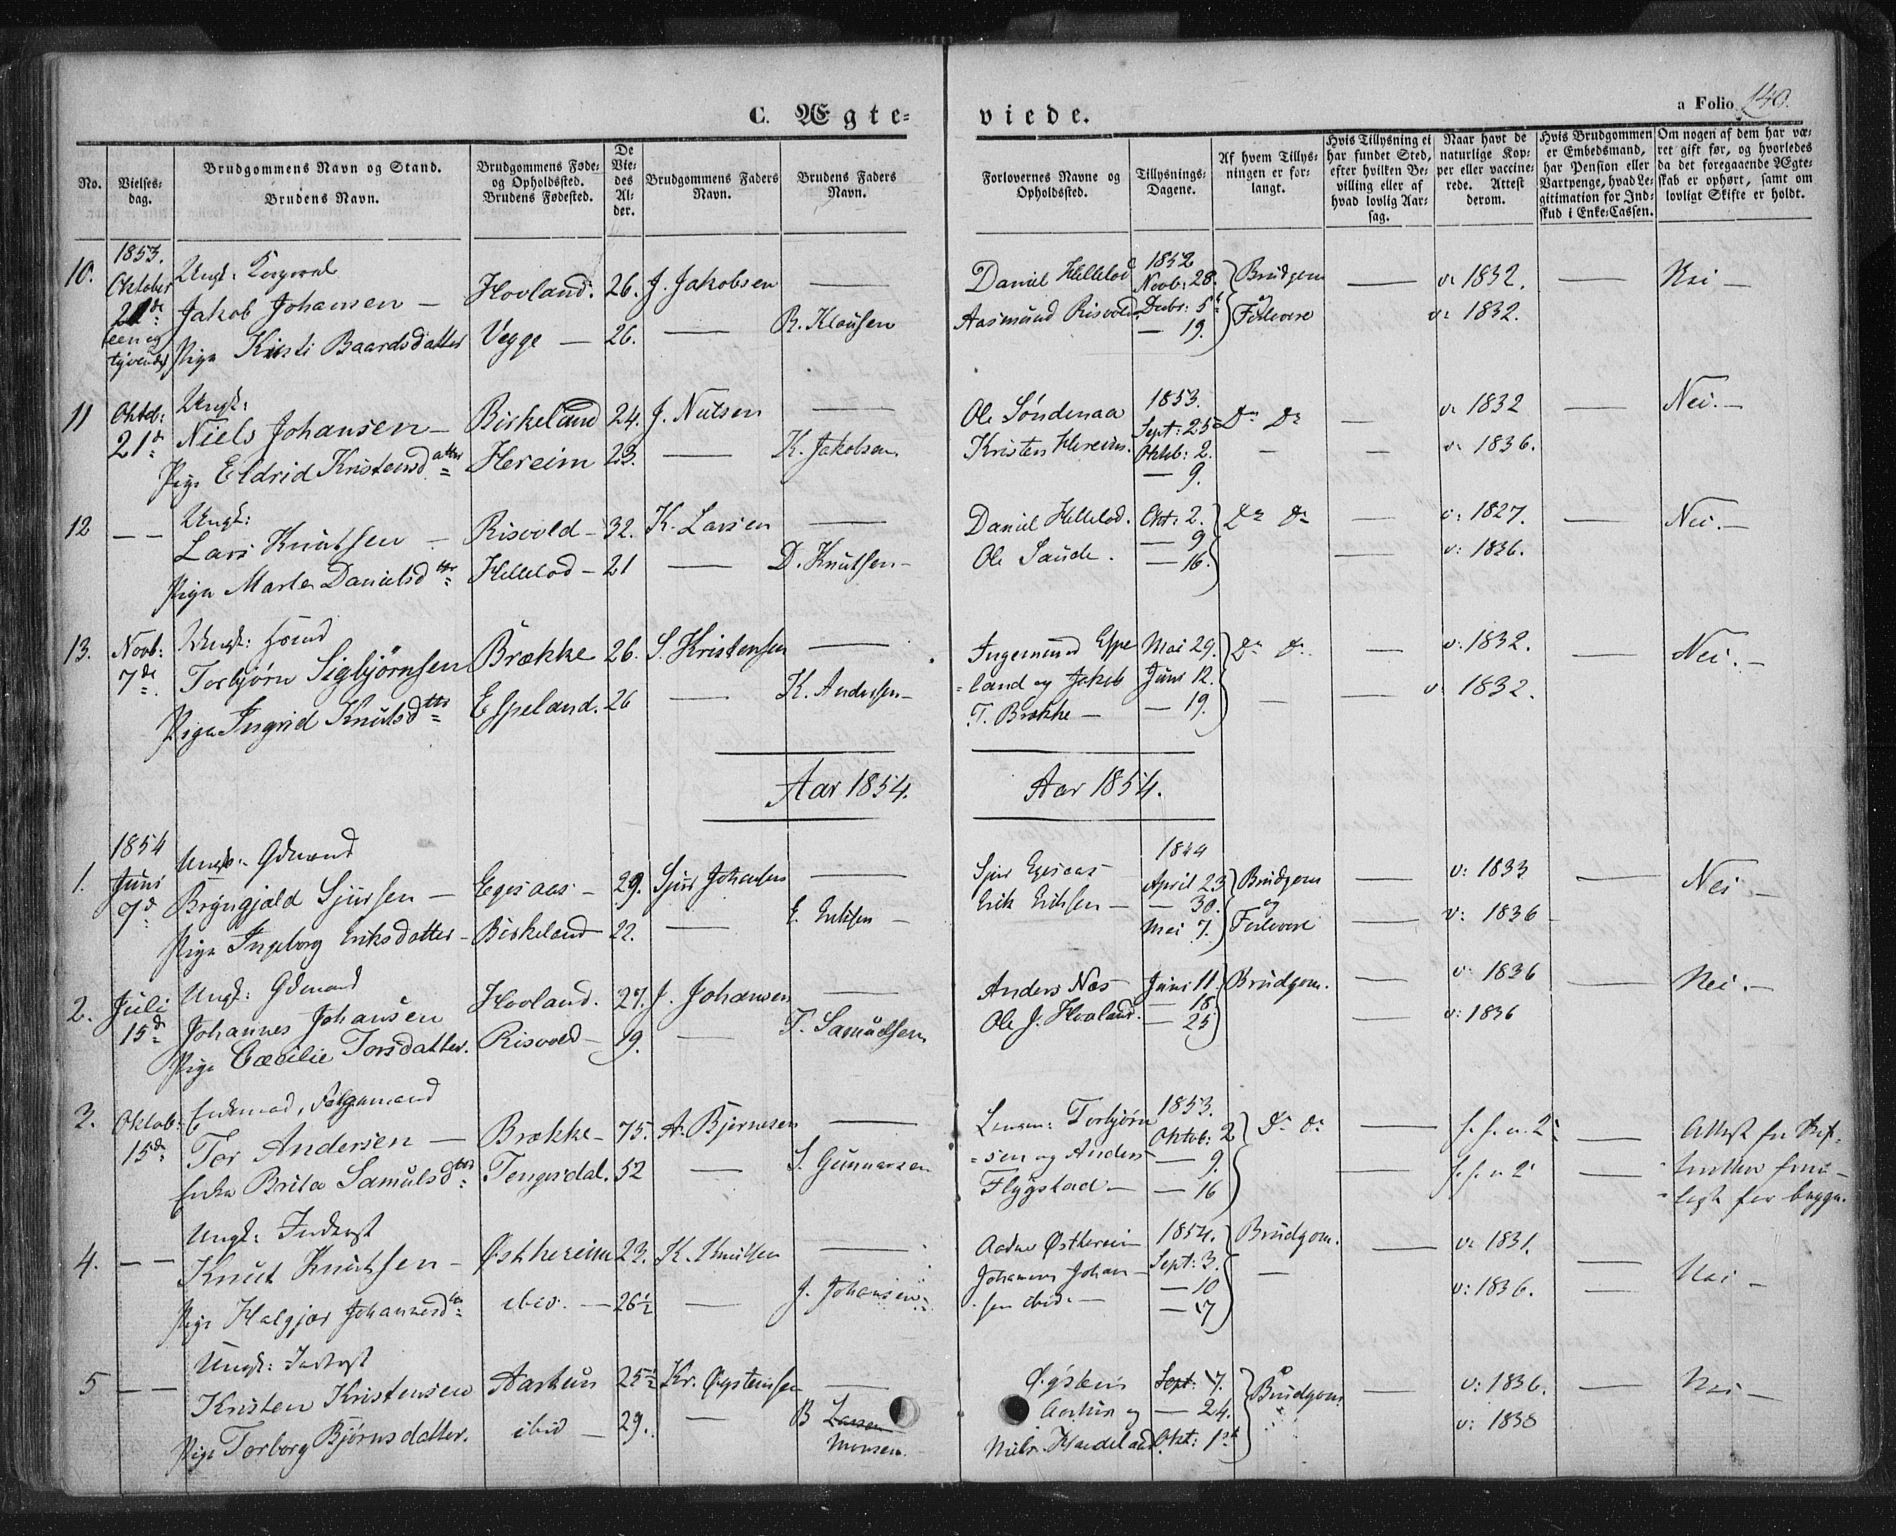 C. Ægte=
viede.
a Folio 140.
No.
Vielses-
dag.
Brudgommens Navn og Stand.
Brudens Navn.
Brudgommens Føde-
og Opholdssted.
Brudens Fødested.
De
Vie-
des
Al-
der.
Brudgommens Faders
Navn.
Brudens Faders
Navn.
Forlovernes Navne og
Opholdssted.
Tillysnings-
Dagene.
Af hvem Tillys-
ningen er for-
langt.
Hvis Tillysning ei
har fundet Sted,
efter hvilken Be-
villing eller af
hvad lovlig Aar-
sag.
Naar havt de
naturlige Kop-
per eller vaccine-
rede. Attest
derom.
Hvis Brudgommen
er Embedsmand,
har Pension eller
Vartpenge, hvad Le-
gitimation for Ind-
skud i Enke-Cassen.
Om nogen af dem har væ-
ret gift før, og hvorledes
da det foregaaende Ægte-
skab er ophørt, samt om
lovligt Skifte er holdt.
10.
1853.
Oktober
21de
een og
tyvende
Ungk:
Jakob Johansen —
Pige Kisti Baardsdatter
Hovland.
Vegge —
26.
26.
J. Jakobsen
B. Klausen
Daniel Hellelod
Aasmund Risvold
1852
Novb: 28.
Decbr: 5
— 19.
Brudgom
og
Forlovere
v. 1832.
v. 1832.
Nei —
11
Oktob:
21de
Ungk:
Niels Johansen —
Pige Eldrid Kristensdatter
Birkeland
Hereim
24.
23.
J. Nielsen
K. Jakobsen
Ole Søndenaa
Kristen Hereim.
1853.
Sept: 25
Oktob: 2.
— 9.
Do Do
v. 1832
v. 1836.
Nei. —
12
— —
Ungk:
Lars Knutsen —
Pige Marta Danielsdtr
Risvold —
Hellelod —
32.
21
K. Larsen
D. Knutsen —
Daniel Hellelod.
Ole Saude.
Okt: 2.
— 9
— 16.
Do Do
v: 1827.
v: 1836.
Nei. —
13.
Novb:
7de
Ungk:
Torbjørn Sigbjørnsen
Pige Ingrid Knutsdtr
Brække
Espeland.
26.
26
S. Kristensen
K. Andersen —
Ingemund Espe
=land og Jakob
T. Brække —
Mai 29.
Juni 12.
— 19.
Do Do
v: 1832.
v. 1832.
Nei. —
Aar 1854.
Aar 1854.
1.
1854
Juni
7de
Ungk: Gdmand
Bryngjald Sjursen —
Pige Ingeborg Eriksdatter —
Egesaas —
Birkeland
29.
22.
Sjur Johansen
E. Eriksen —
Sjur Egesaas
Erik Eriksen —
1854
April 23
— 30.
Mai 7.
Brudgom
og
Forlovere
v: 1833
v: 1836
Nei —
2.
Juli
15de
Ungk: Gdmand
Johannes Johansen
Pige Cæcilie Torsdatter.
Hovland.
Risvold —
27.
19.
J. Johansen
T. Samuelsen
Anders Næs
Ole J. Hovland.
Juni 11
— 18
— 25
Brudgom.
v: 1836
v: 1836
Nei. —
Oktob:
15de
Enkemand,
Tor Andersen —
Enke Brita Samuelsdtr
Brække —
Tengesdal.
75.
52
A. Bjørnesen
S. Gunnarsen
Torbjørn
=sen og Anders
Flygstad —
1853.
Oktob: 2
— 9.
— 16
Do Do
Attest fra Skif-
for begge.
4.
— —
Ungk: Inderst
Knut Knutsen —
Pige Halgjær Johannesdtr
Østhereim
ibid. —
23.
26½
K. Knutsen
J. Johansen
Østhereim
Johannes Johan —
sen ibid. —
1854.
Sept: 3.
— 10
— 17
Brudgom.
v: 1831.
v: 1836.
Nei —
5
— —
Ungk: Inderst
Kristen Kristensen
Pige Torborg Bjørnsdatter.
Aarhus
ibid —
25½
29.
Kr. Øysteinsen
B Larsen
Monsen.
Øysten
Aarhus og
Niels Handeland
Sept: 17.
— 24.
Okt: 1st
Brudgom
v: 1836.
v: 1838
Nei —